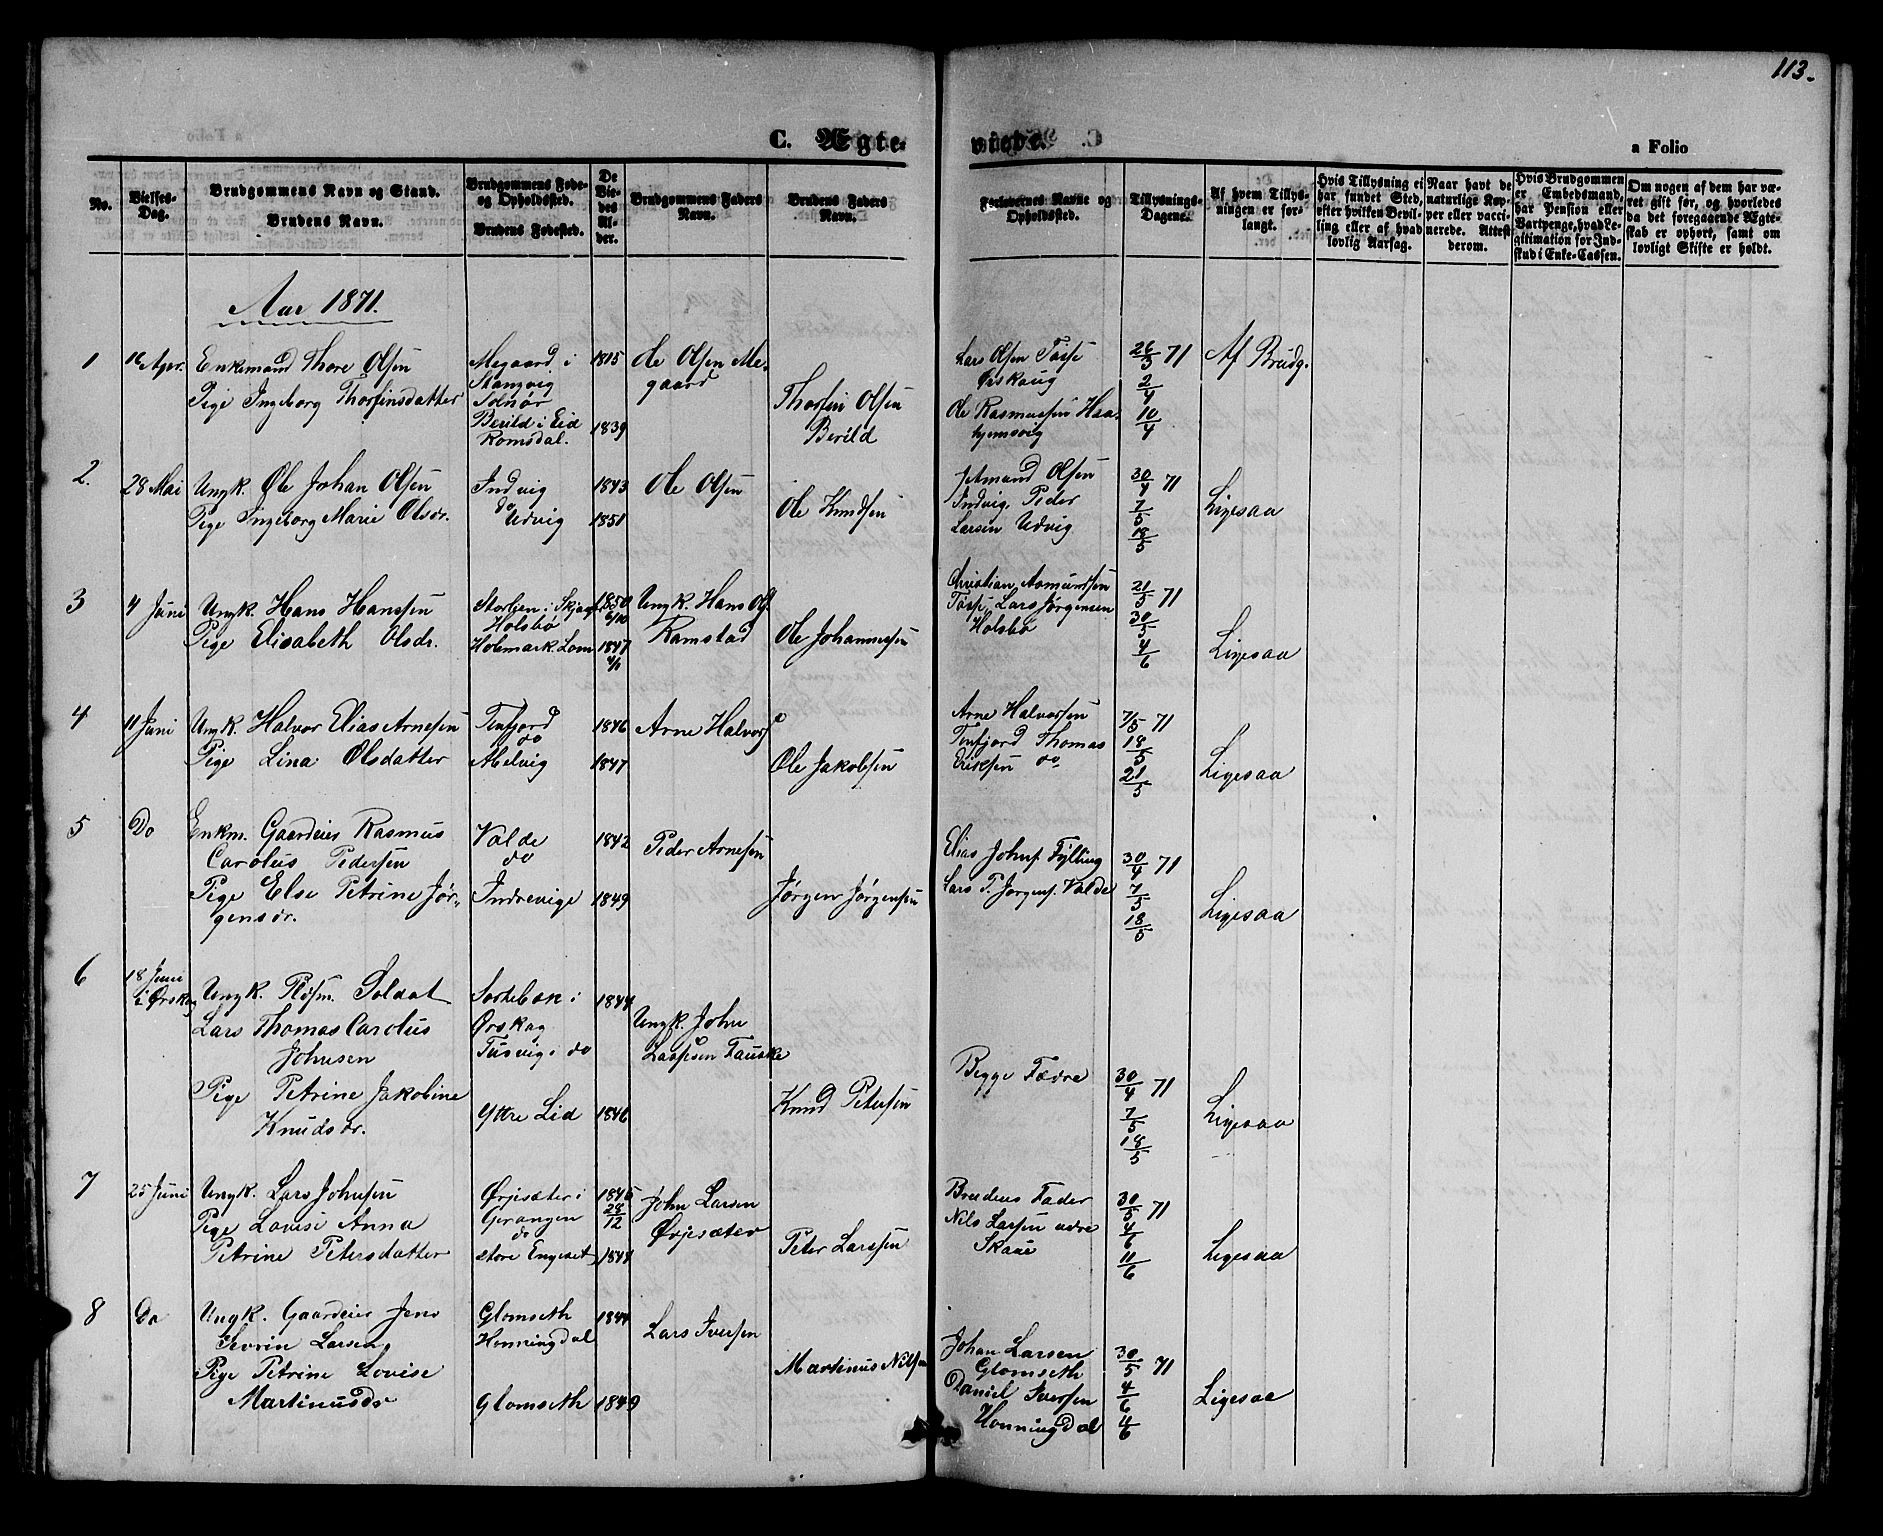 113.
C. Ægte-
viede.
a Folio
No.
Vielses-Dag.
Brudgommens Navn og Stand.
Brudens Navn.
Brudgommens Føde- og Opholdssted.
Brudens Fødested.
De Viedes Alder.
Brudgommens Faders Navn.
Brudens Faders Navn.
Forlovernes Navne og Opholdssted.
Tillysnings-Dagene.
Af hvem Tillysningen er forlangt.
Hvis Tillysning ei har fundet Sted, efter hvilken Bevilling eller af hvad lovlig Aarsag.
Naar havt de naturlige Kopper eller vaccinerede. Attest derom.
Hvis Brudgommen er Embedsmand, har Pension eller Vartpenge, hvad Legitimation for Indskud i Enke-Cassen.
Om nogen af dem har været gift før, og hvorledes da det foregaaende Ægteskab er ophørt, samt om lovligt Skifte er holdt.
Aar 1871.
1 16 Apr. Enkemand Thore Olsen
Pige Ingeborg Thorfinsdatter
Megaard i
Stangvig
Solnør
Berild i Eid
Romsdal.
1815
1839
Ole Olsen Me-
gaard
Thorfin Olsen
Berild
Lars Olsen
Ørskoug
Ole Rasmussen Haa-
hjemsvig
26/3 71
2/4
10/4
Af Brudg.
2. 28 Mai Ungk. Ole Johan Olsen
Pige Ingeborg Marie Olsdr.
Indvig
do
Udvig
1843
1851
Ole Olsen
Ole Knudsen
Jetmund Olsen
Indvig, Peder
Larsen Udvig
30/4 71
7/5
18/5
Ligesaa
3 4 Juni Ungk. Hans Hanssen
Pige Elisabeth Olsdr.
Storlien i Skjag
Holsbø
Holemark Lom
1850
6/10
1847
Ungk. Hans Ols.
Ramstad
Ole Johannessen
Christian Asmundsen
Lars Jørgensen
Holsbø
21/5 71
30/5
4/6
Ligesaa
4 11 Juni Ungk. Halvor Elias Arnesen
Pige Lina Olsdatter
Tenfjord
do
Abelvig
1846
1847
Arne Halvors
Ole Jakobsen
Arne Halvorsen
Tenfjord Thomas
Eriksen do
7/5 71
18/5
21/5
Ligesaa
5 Do Enkm. Gaardeier Rasmus
Carolus Pedersen
Pige Else Petrine Jør-
gensdr.
Valde
do
Indrevige
1842
1849
Peder Arnesen
Jørgen Jørgensen
Elias Johns. Fylling
Lars P. Jørgens. Valde
30/4 71
7/5
18/5
Ligesaa
6 18 Juni
i Ørskog
Ungk. Soldat
Lars Thomas Carolus
Johnsen
Pige Petrine Jakobine
Knudsdr.
Sortebæk i
Ørskog
Tusvig i do
Yttre Lid
1844
1846
Ungk. John
Larssen Fauske
Knud Petersen
Begge Fædre
30/4 71
7/5
18/5
Ligesaa
7 25 Juni Ungk. Lars Johnsen
Pige Lovise Anna
Petrine Petersdatter
Ørjesæter i
Gerangen
do
Store Engeset
1845
28/12
1844
John Larsen
Ørjesæter
Peter Larssen
Brudens Fader
Nils Larssen
30/5 71
4/6
11/6
Ligesaa
8 Do Ungk. Gaardeier Jens
Sevrin Larsen
Pige Petrine Lovise
Martinusdr
Glomseth
Honningdal
Glomseth
1844
1849
Lars Iversen
Martinus Nilsen
Johan Larsen
Glomseth
Daniel Iversen
Honningdal
30/5 71
4/6
4/6
Ligesaa